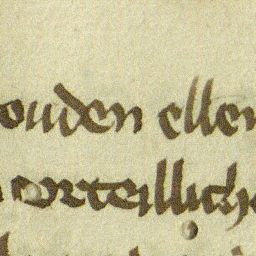 ouden ellen
orteillich